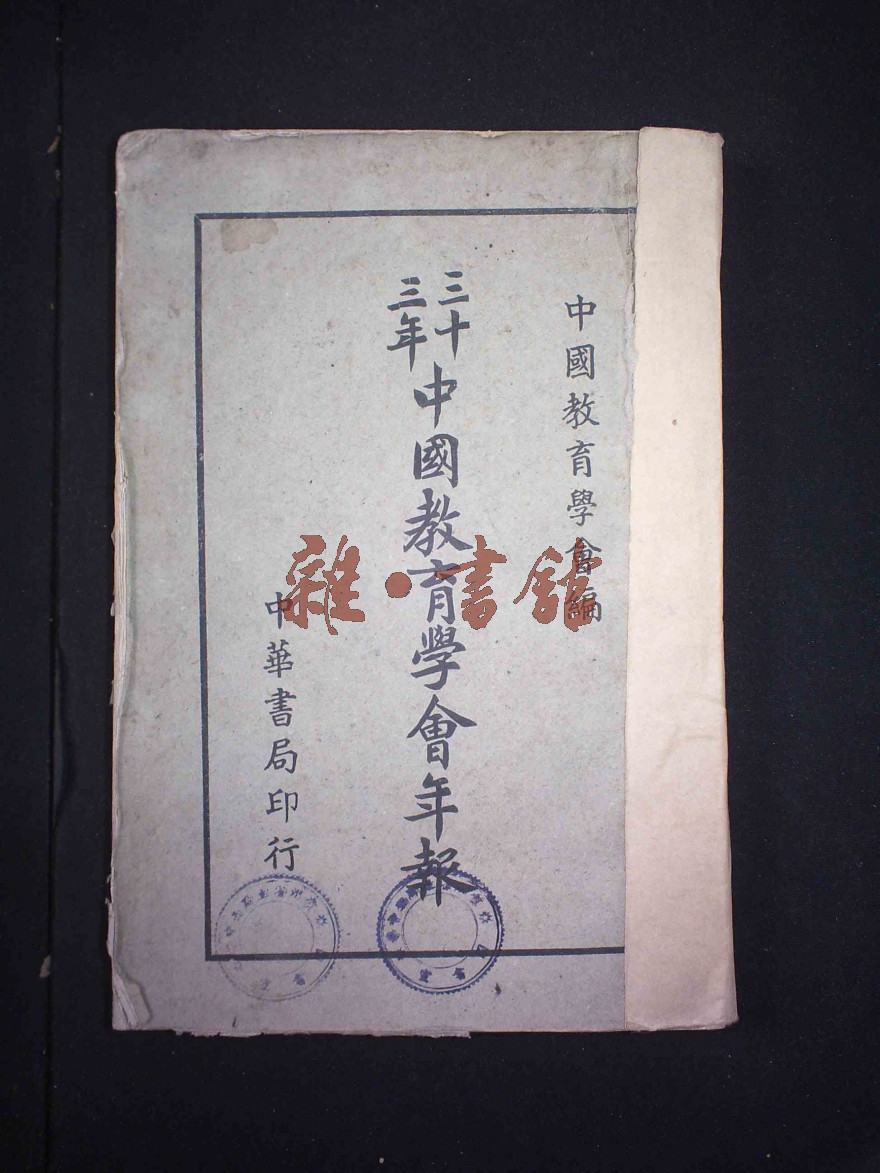 中國教育學會編
三十
三年
中國教育學會年報
中華書局印行
雜·書館